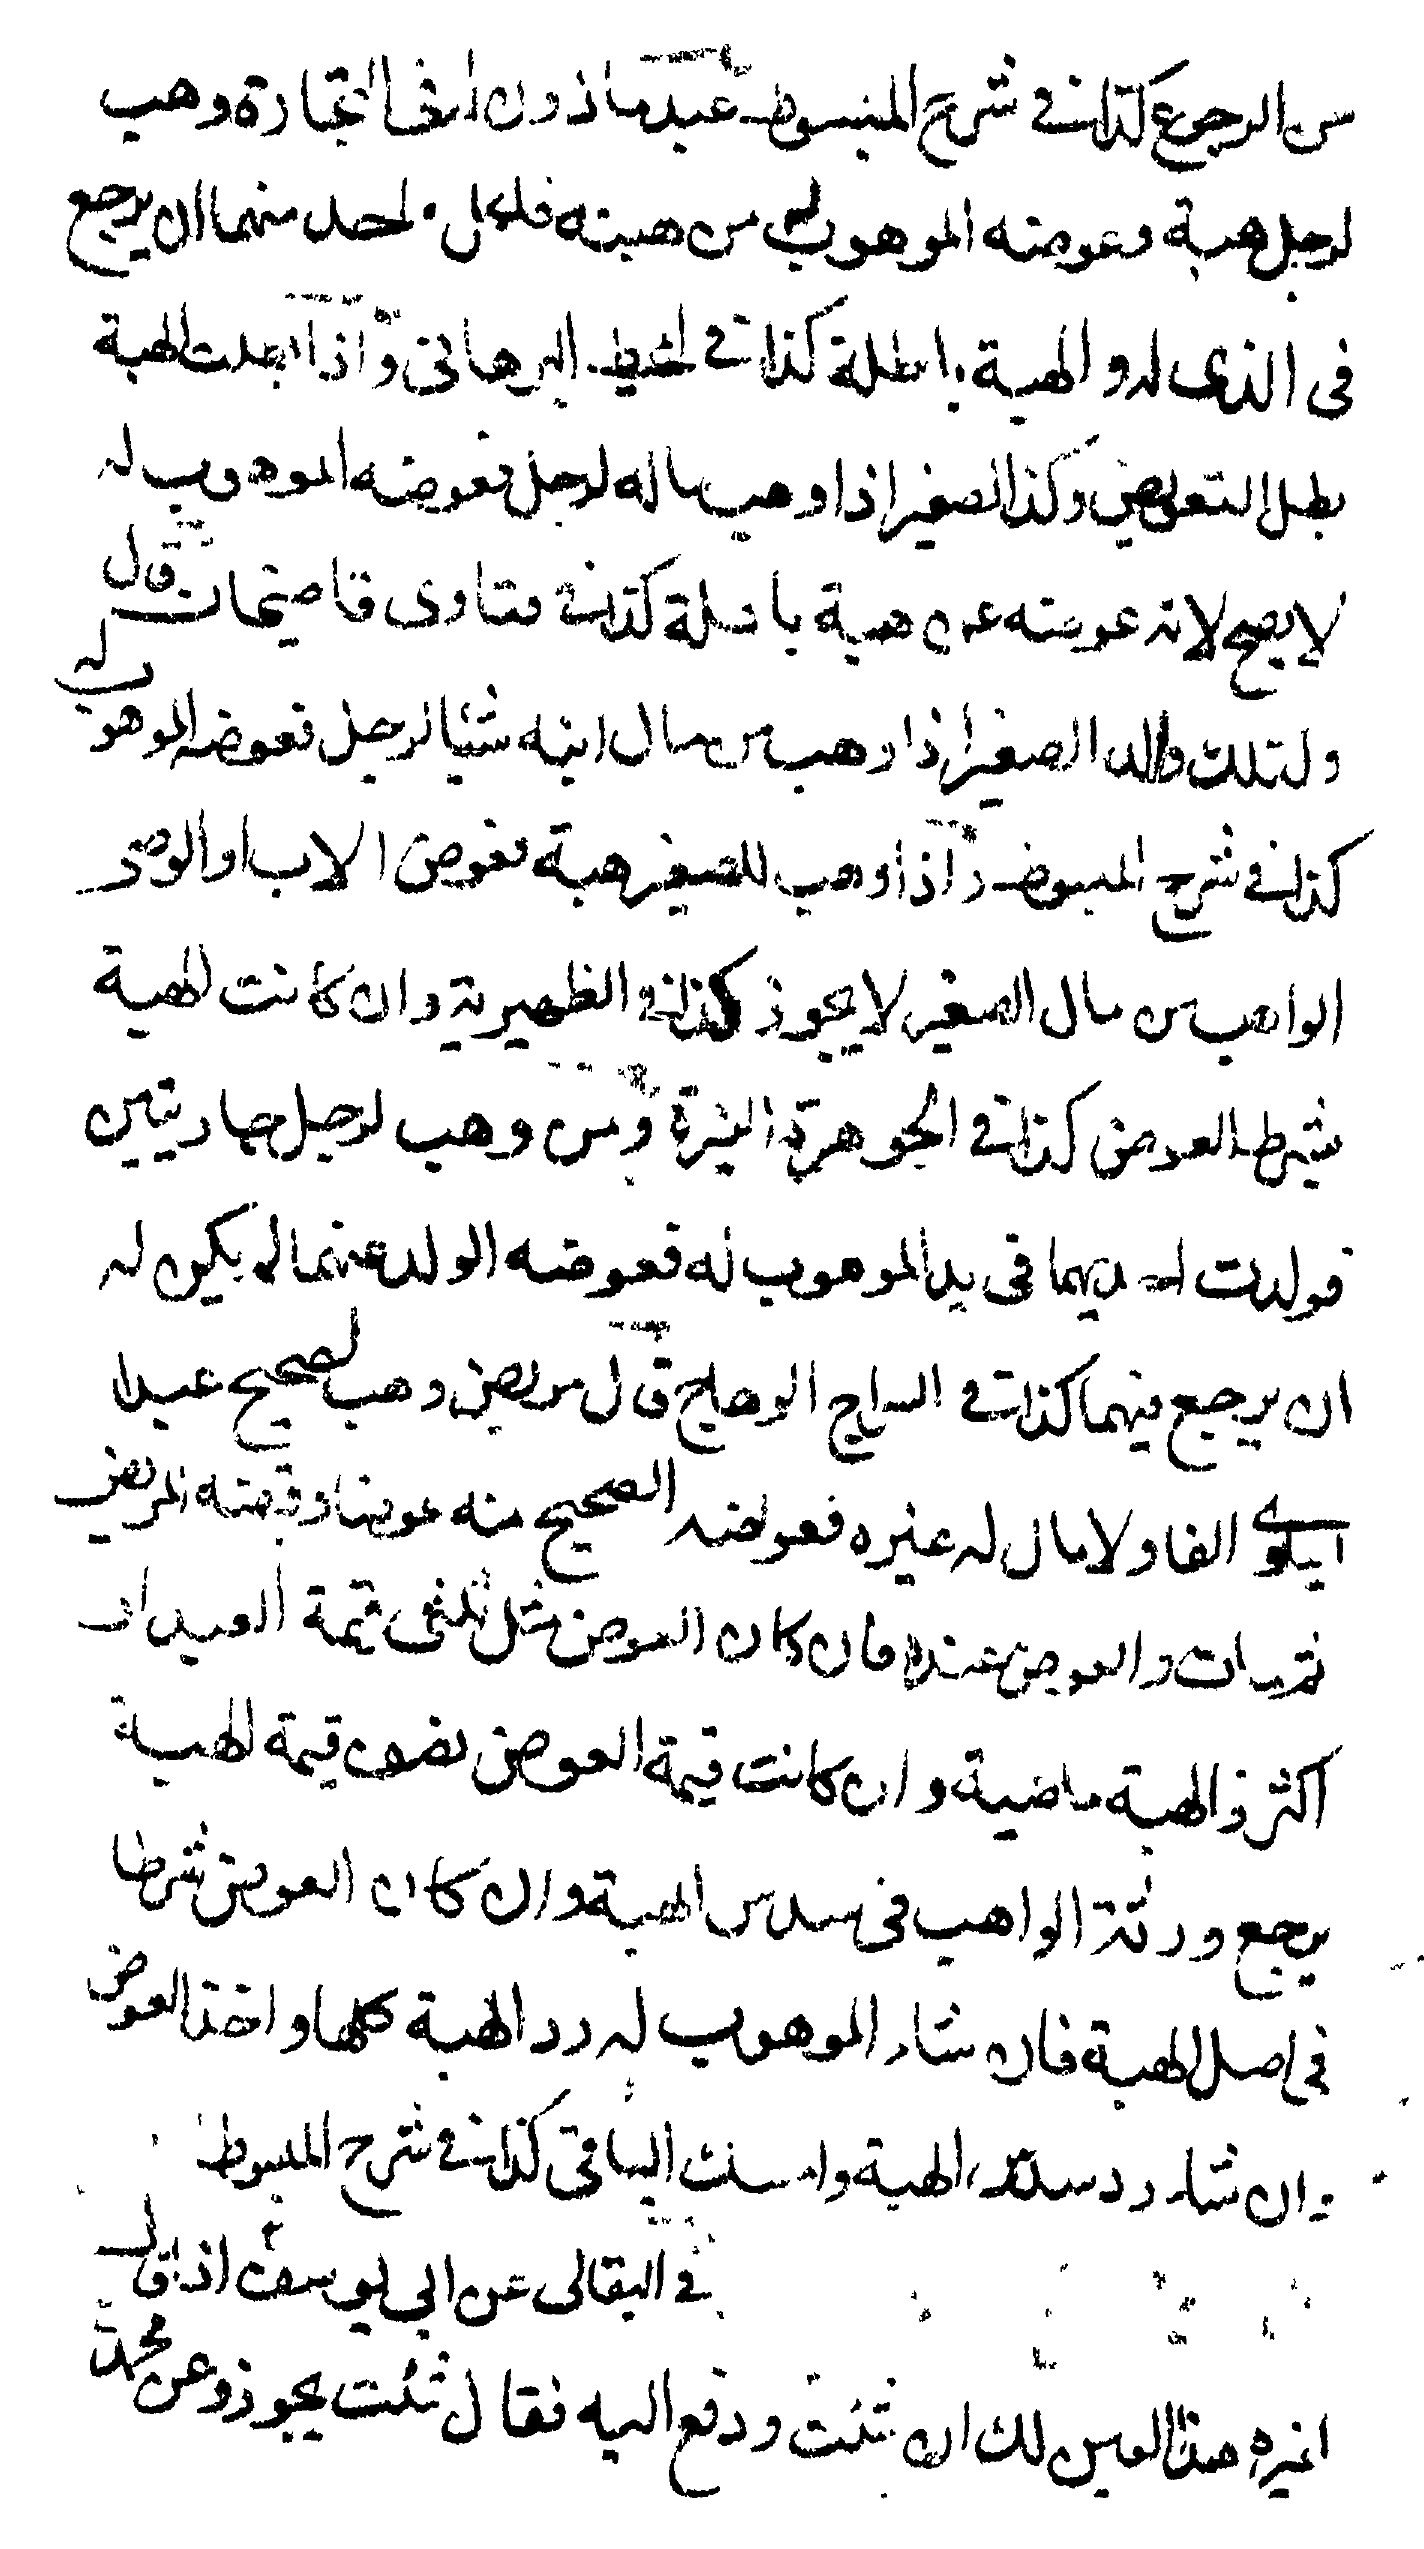 من الرجوع كذا في شرح المبسوط عبد ماذون في التجارة وهب
لرجل هبة وعوضه الموهوب له من هبته فلكل واحد منهما ان يرجع
فى الذى له والهبة باطلة كذا في المحيط البرهانى واذا ابطلت الهبة
بطل التعويض وكذا الصغير اذا وهب ماله لرجل فعوضه الموهوب له
لا يصح لانه عوضه عن هبة باطلة كذا في فتاوى قاضيخان قال
وكذلك والد الصغير اذا وهب من مال ابنه شيئا لرجل فعوضه الموهوب له
كذا في شرح المبسوط واذا وهب للصغير هبة فعوض الاب او الوصى
الواهب من مال الصغير لا يجوز كذا في الظهيرية وان كانت الهبة
بشرط العوض كذا في الجوهرة النيرة ومن وهب لرجل جاريتين
فولدت احديهما فى يد الموهوب له فعوضه الولد عنهما لم يكن له
ان يرجع فيهما كذا في السراج الوهاج قال مريض وهب لصحيح عبدا
يساوى الفا ولا مال له غيره فعوضه الصحيح منه عوضا وقبضه المريض
ثم مات والعوض عنده فان كان العوض مثل ثلثى قيمة العبد او
اكثر فالهبة ماضية وان كانت قيمة العوض نصف قيمة الهبة
يرجع ورثة الواهب فى سدس الهبة وان كان العوض شرطا
فى اصل الهبة فان شاء الموهوب له رد الهبة كلها واخذ العوض
وان شاء رد سدس الهبة وامسك الباقى كذا في شرح المبسوط
في البقالى عن ابي يوسف اذا قال
لغيره هذا العين لك ان شئت ودفع اليه فقال شئت يجوز وعن محمد